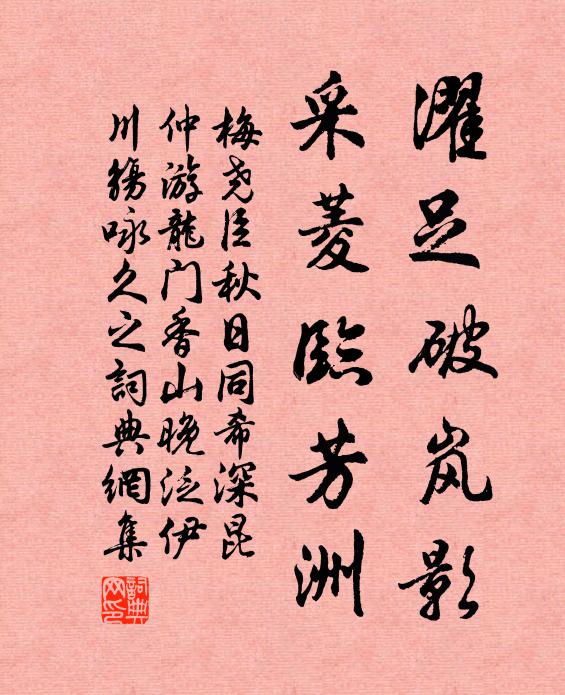 濯足破岚影
采菱臨芳洲
梅尧臣秋日同希深昆
仲游龍门香山晚泛伊
川觴咏久之詞典網集
詞典网印